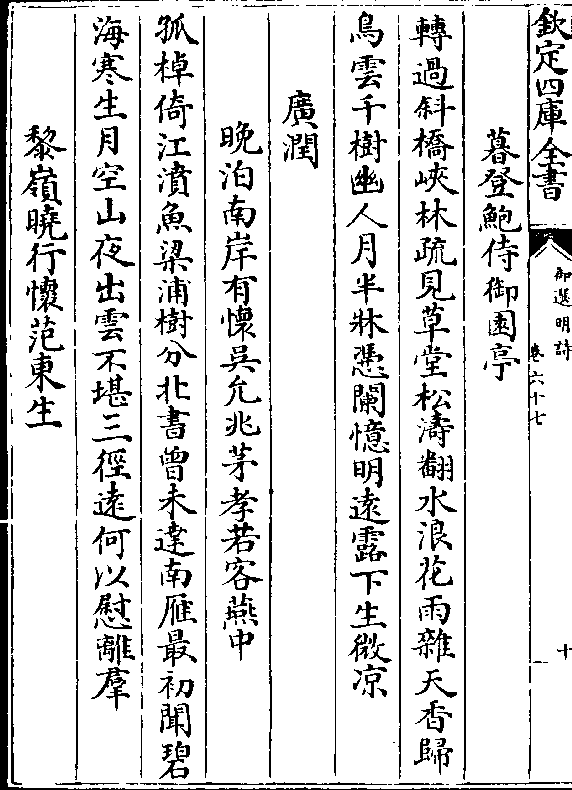 欽定四庫全書
御選明詩
卷六十七
十
暮登鮑侍御園亭
轉過斜橋峽林疏見草堂松濤翻水浪花雨雜天香歸
鳥雲千樹幽人月半牀憑闌憶明遠露下生微凉
廣潤
晚泊南岸有懷吳允兆茅孝若客燕中
孤棹倚江濆魚梁浦樹分北書曾未達南雁最初聞碧
海寒生月空山夜出雲不堪三徑遠何以慰離羣
黎嶺曉行懷范東生